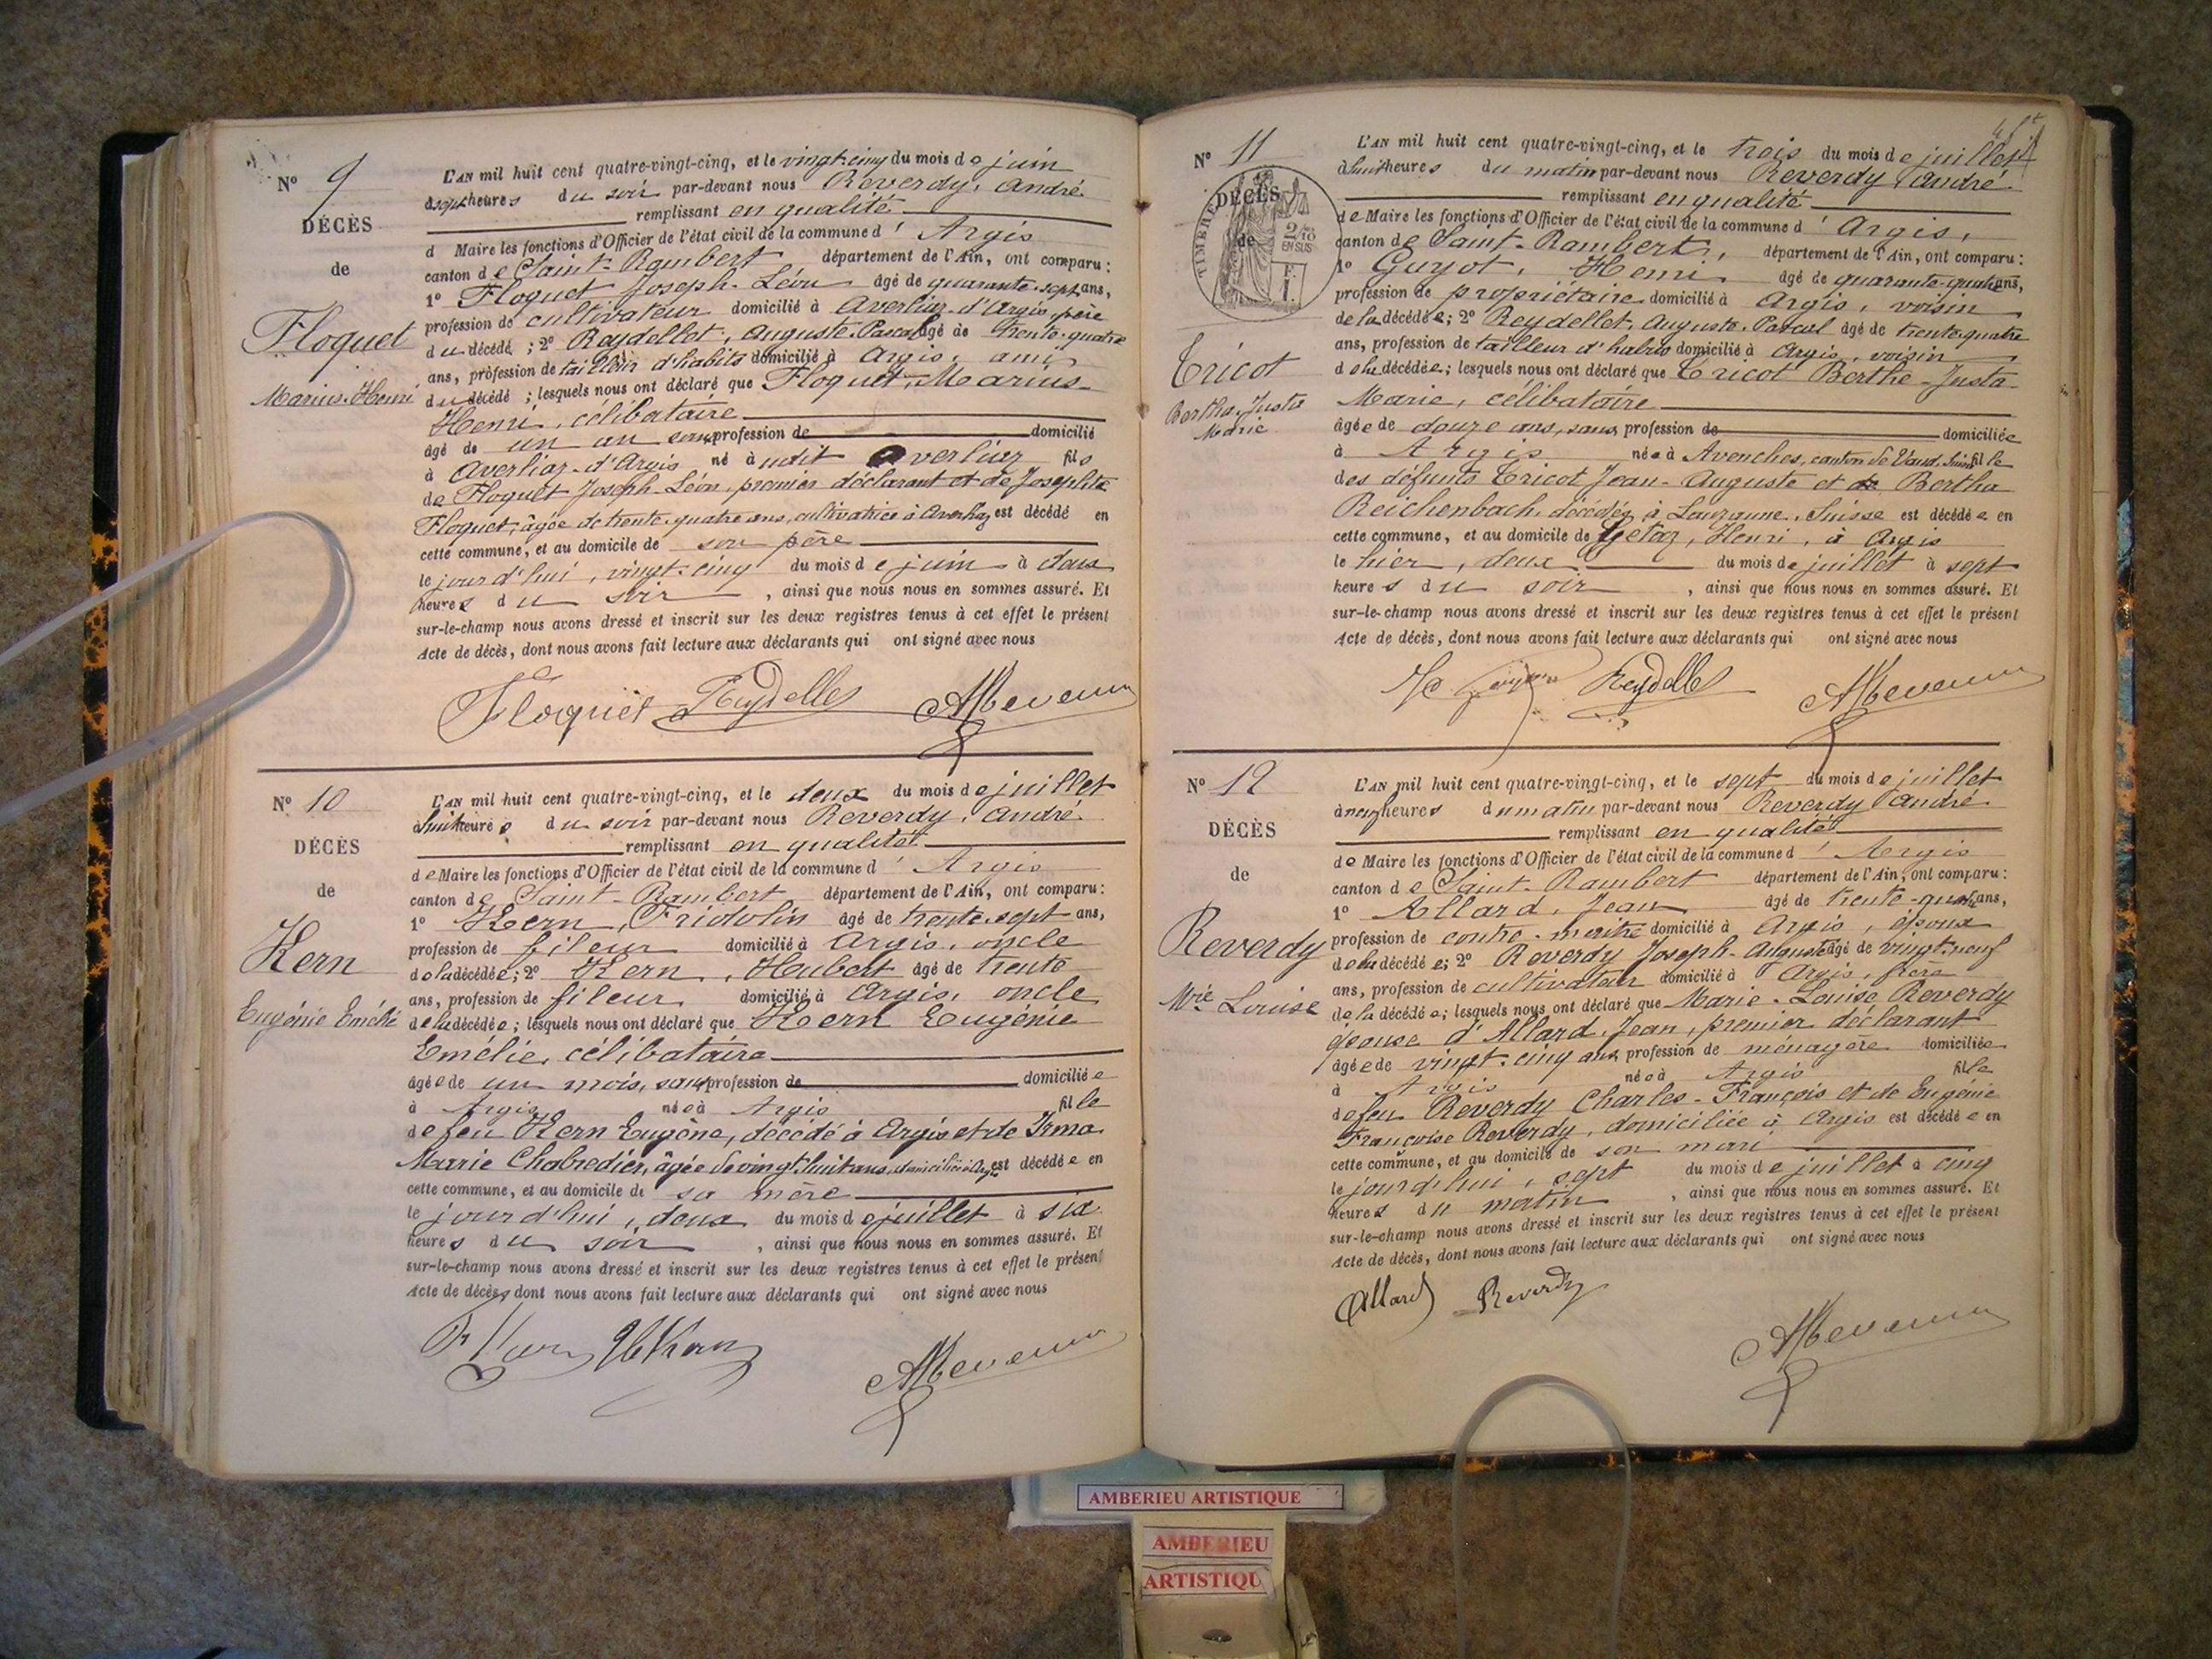 Nº 9
DÉCÈS
de
Floquet
Marius-Henri
L'AN mil huit cent quatre-vingt-cinq, et le vingt-cinq du mois de juin
à sept heures du soir par-devant nous Reverdy, André
remplissant en qualité
d Maire les fonctions d'Officier de l'état civil de la commune d' Argis
canton de Saint-Rambert département de l'Ain, ont comparu :
1º Floquet Joseph-Léon âgé de quarante-sept ans,
profession de cultivateur domicilié à Averliaz-d'Argis, père
du décédé ; 2º Reydellet, Auguste-Pascal âgé de trente-quatre
ans, profession de tailleur d'habits domicilié à Argis, ami
du décédé ; lesquels nous ont déclaré que Floquet, Marius-
Henri, célibataire
âgé de un an sans profession de domicilié
à Averliaz-d'Argis né à udit Averliaz fils
de Floquet Joseph-Léon, premier déclarant et de Josephte
Floquet, âgée de trente-quatre ans, cultivatrice à Averliaz est décédé en
cette commune, et au domicile de son père
le jourd'hui, vingt-cinq du mois de juin à deux
heures du soir , ainsi que nous nous en sommes assuré. Et
sur-le-champ nous avons dressé et inscrit sur les deux registres tenus à cet effet le présent
Acte de décès, dont nous avons fait lecture aux déclarants qui ont signé avec nous
Floquet Reydellet
Nº 10
DÉCÈS
de
Kern
Eugénie Emélie
L'AN mil huit cent quatre-vingt-cinq, et le deux du mois de juillet
à huit heures du soir par-devant nous Reverdy, André
remplissant en qualité
de Maire les fonctions d'Officier de l'état civil de la commune d' Argis
canton de Saint-Rambert département de l'Ain, ont comparu :
1º Kern, Fridolin âgé de trente-sept ans,
profession de fileur domicilié à Argis, oncle
de la décédée ; 2º Kern, Hubert âgé de trente
ans, profession de fileur domicilié à Argis, oncle
de la décédée ; lesquels nous ont déclaré que Kern Eugénie
Emélie, célibataire
âgée de un mois, sans profession de domiciliée
à Argis née à Argis fille
de feu Kern Eugène, décédé à Argis et de Irma
Marrie Chabredier, âgée de vingt-huit ans, domiciliée à Argis est décédée en
cette commune, et au domicile de sa mère
le jourd'hui, deux du mois de juillet à six
heures du soir , ainsi que nous nous en sommes assuré. Et
sur-le-champ nous avons dressé et inscrit sur les deux registres tenus à cet effet le présent
Acte de décès, dont nous avons fait lecture aux déclarants qui ont signé avec nous
F Kern Hb Kern
Nº 11
DÉCÈS
de
TIMBRE
2/10
EN SUS
Tricot
Bertha-Justa
Marie
L'AN mil huit cent quatre-vingt-cinq, et le trois du mois de juillet
à huit heures du matin par-devant nous Reverdy, André
remplissant en qualité
de Maire les fonctions d'Officier de l'état civil de la commune d' Argis,
canton de Saint-Rambert, département de l'Ain, ont comparu :
1º Guyot, Henri âgé de quarante-quatre ans,
profession de propriétaire domicilié à Argis, voisin
de la décédée ; 2º Reydellet, Auguste-Pascal âgé de trente-quatre
ans, profession de tailleur d'habits domicilié à Argis, voisin
de la décédée ; lesquels nous ont déclaré que Tricot Berthe-Justa
Marie, célibataire
âgée de douze ans, sans profession de domiciliée
à Argis née à Avenches, canton de Vaud, Suisse fille
des défunts Tricot Jean-Auguste et de Bertha
Reichenbach, décédés à Lauzanne, Suisse est décédée en
cette commune, et au domicile de Getaz, Henri, à Argis
le hier, deux du mois de juillet à sept
heures du soir , ainsi que nous nous en sommes assuré. Et
sur-le-champ nous avons dressé et inscrit sur les deux registres tenus à cet effet le présent
Acte de décès, dont nous avons fait lecture aux déclarants qui ont signé avec nous
Reydellet
Nº 12
DÉCÈS
de
Reverdy
Mrie Louise
L'AN mil huit cent quatre-vingt-cinq, et le sept du mois de juillet
à neuf heures du matin par-devant nous Reverdy André
remplissant en qualité
de Maire les fonctions d'Officier de l'état civil de la commune d' Argis
canton de Saint-Rambert département de l'Ain, ont comparu :
1º Allard, Jean âgé de trente-quatre ans,
profession de contre-maitre domicilié à Argis, époux
de la décédée ; 2º Reverdy Joseph-Auguste âgé de vingt-neuf
ans, profession de cultivateur domicilié à Argis, frère
de la décédée ; lesquels nous ont déclaré que Marie-Louise Reverdy
épouse d'Allard Jean, premier déclarant
âgée de vingt-cinq ans, profession de ménagère domiciliée
à Argis née à Argis fille
de feu Reverdy Charles-François et de Eugénie
Françoise Reverdy, domiciliée à Argis est décédée en
cette commune, et au domicile de son mari
le jourd'hui, sept du mois de juillet à cinq
heures du matin , ainsi que nous nous en sommes assuré. Et
sur-le-champ nous avons dressé et inscrit sur les deux registres tenus à cet effet le présent
Acte de décès, dont nous avons fait lecture aux déclarants qui ont signé avec nous
Allard Reverdy
AMBERIEU ARTISTIQUE
AMBERIEU
ARTISTIQU